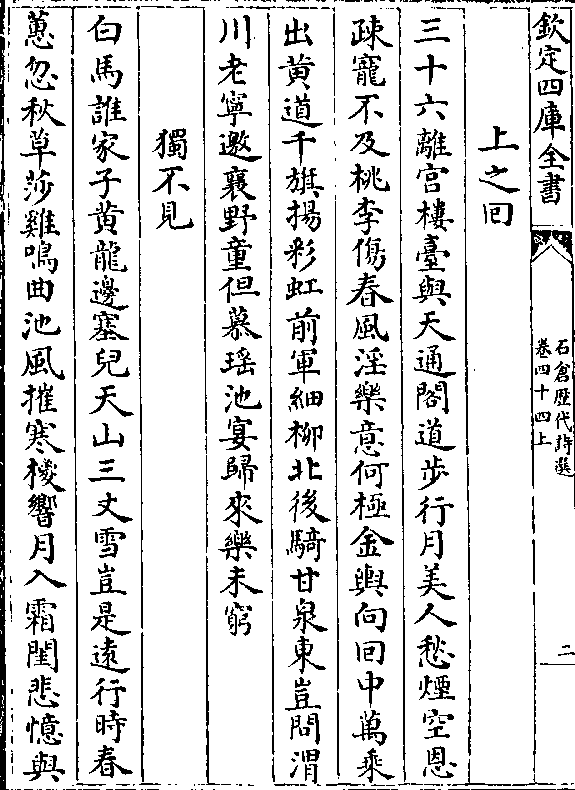 欽定四庫全書
石倉歴代詩選
卷四十四上
二
上之回
三十六離宮樓臺與天通閣道步行月美人愁煙空恩
疎寵不及桃李傷春風淫樂意何極金輿向回中萬乘
出黄道千旗揚彩虹前軍細柳北後騎甘泉東豈問渭
川老寧邀襄野童但慕瑤池宴歸來樂未窮
獨不見
白馬誰家子黄龍邊塞兒天山三丈雪豈是遠行時春
蕙忽秋草莎雞鳴曲池風摧寒梭響月入霜閨悲憶與